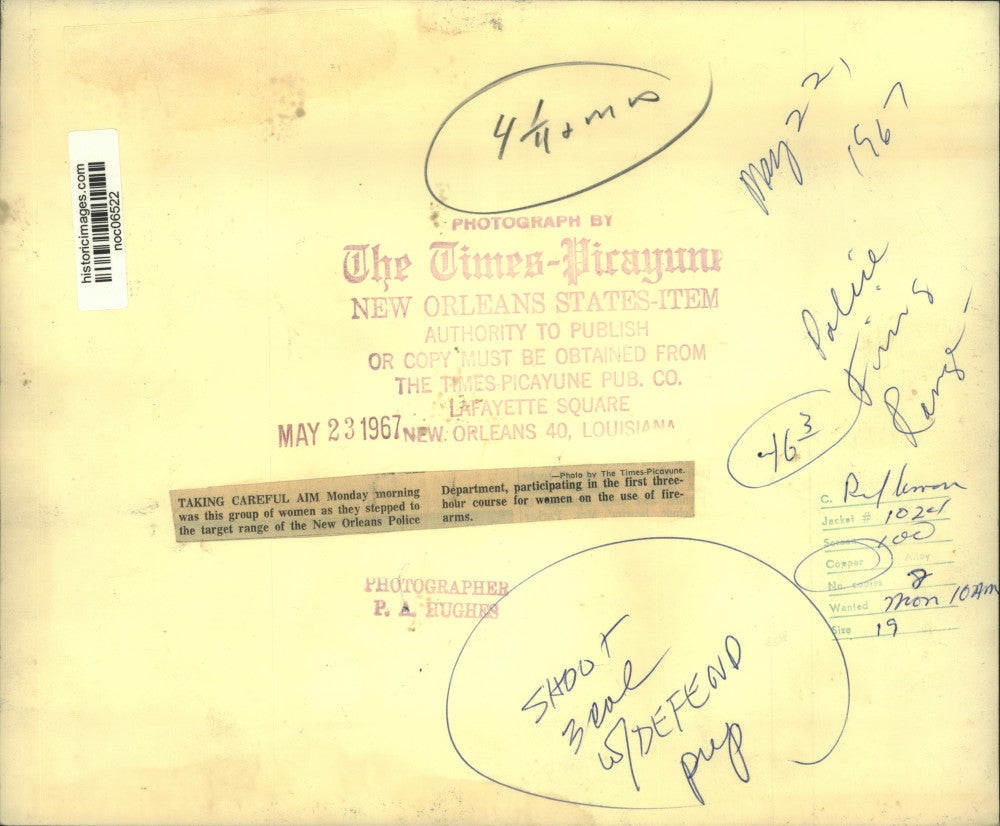 4 1/11 + m
May 22, 1967
historicimages.com
noc06522
PHOTOGRAPH BY
The Times-Picayune
NEW ORLEANS STATES-ITEM
AUTHORITY TO PUBLISH
OR COPY MUST BE OBTAINED FROM
THE TIMES-PICAYUNE PUB. CO.
LAFAYETTE SQUARE
NEW ORLEANS 40, LOUISIANA
MAY 23 1967
Police
Firing
Range-
46 3
TAKING CAREFUL AIM Monday morning
was this group of women as they stepped to
the target range of the New Orleans Police
—Photo by The Times-Picayune.
Department, participating in the first three-
hour course for women on the use of fire-
arms.
C.
Jacket # 1024
Screen 100
Copper Alloy
No. copies 8
Wanted Mon 10 AM
Size 19
PHOTOGRAPHER
P. A. HUGHES
SHOOT
3 col
w/DEFEND
prep